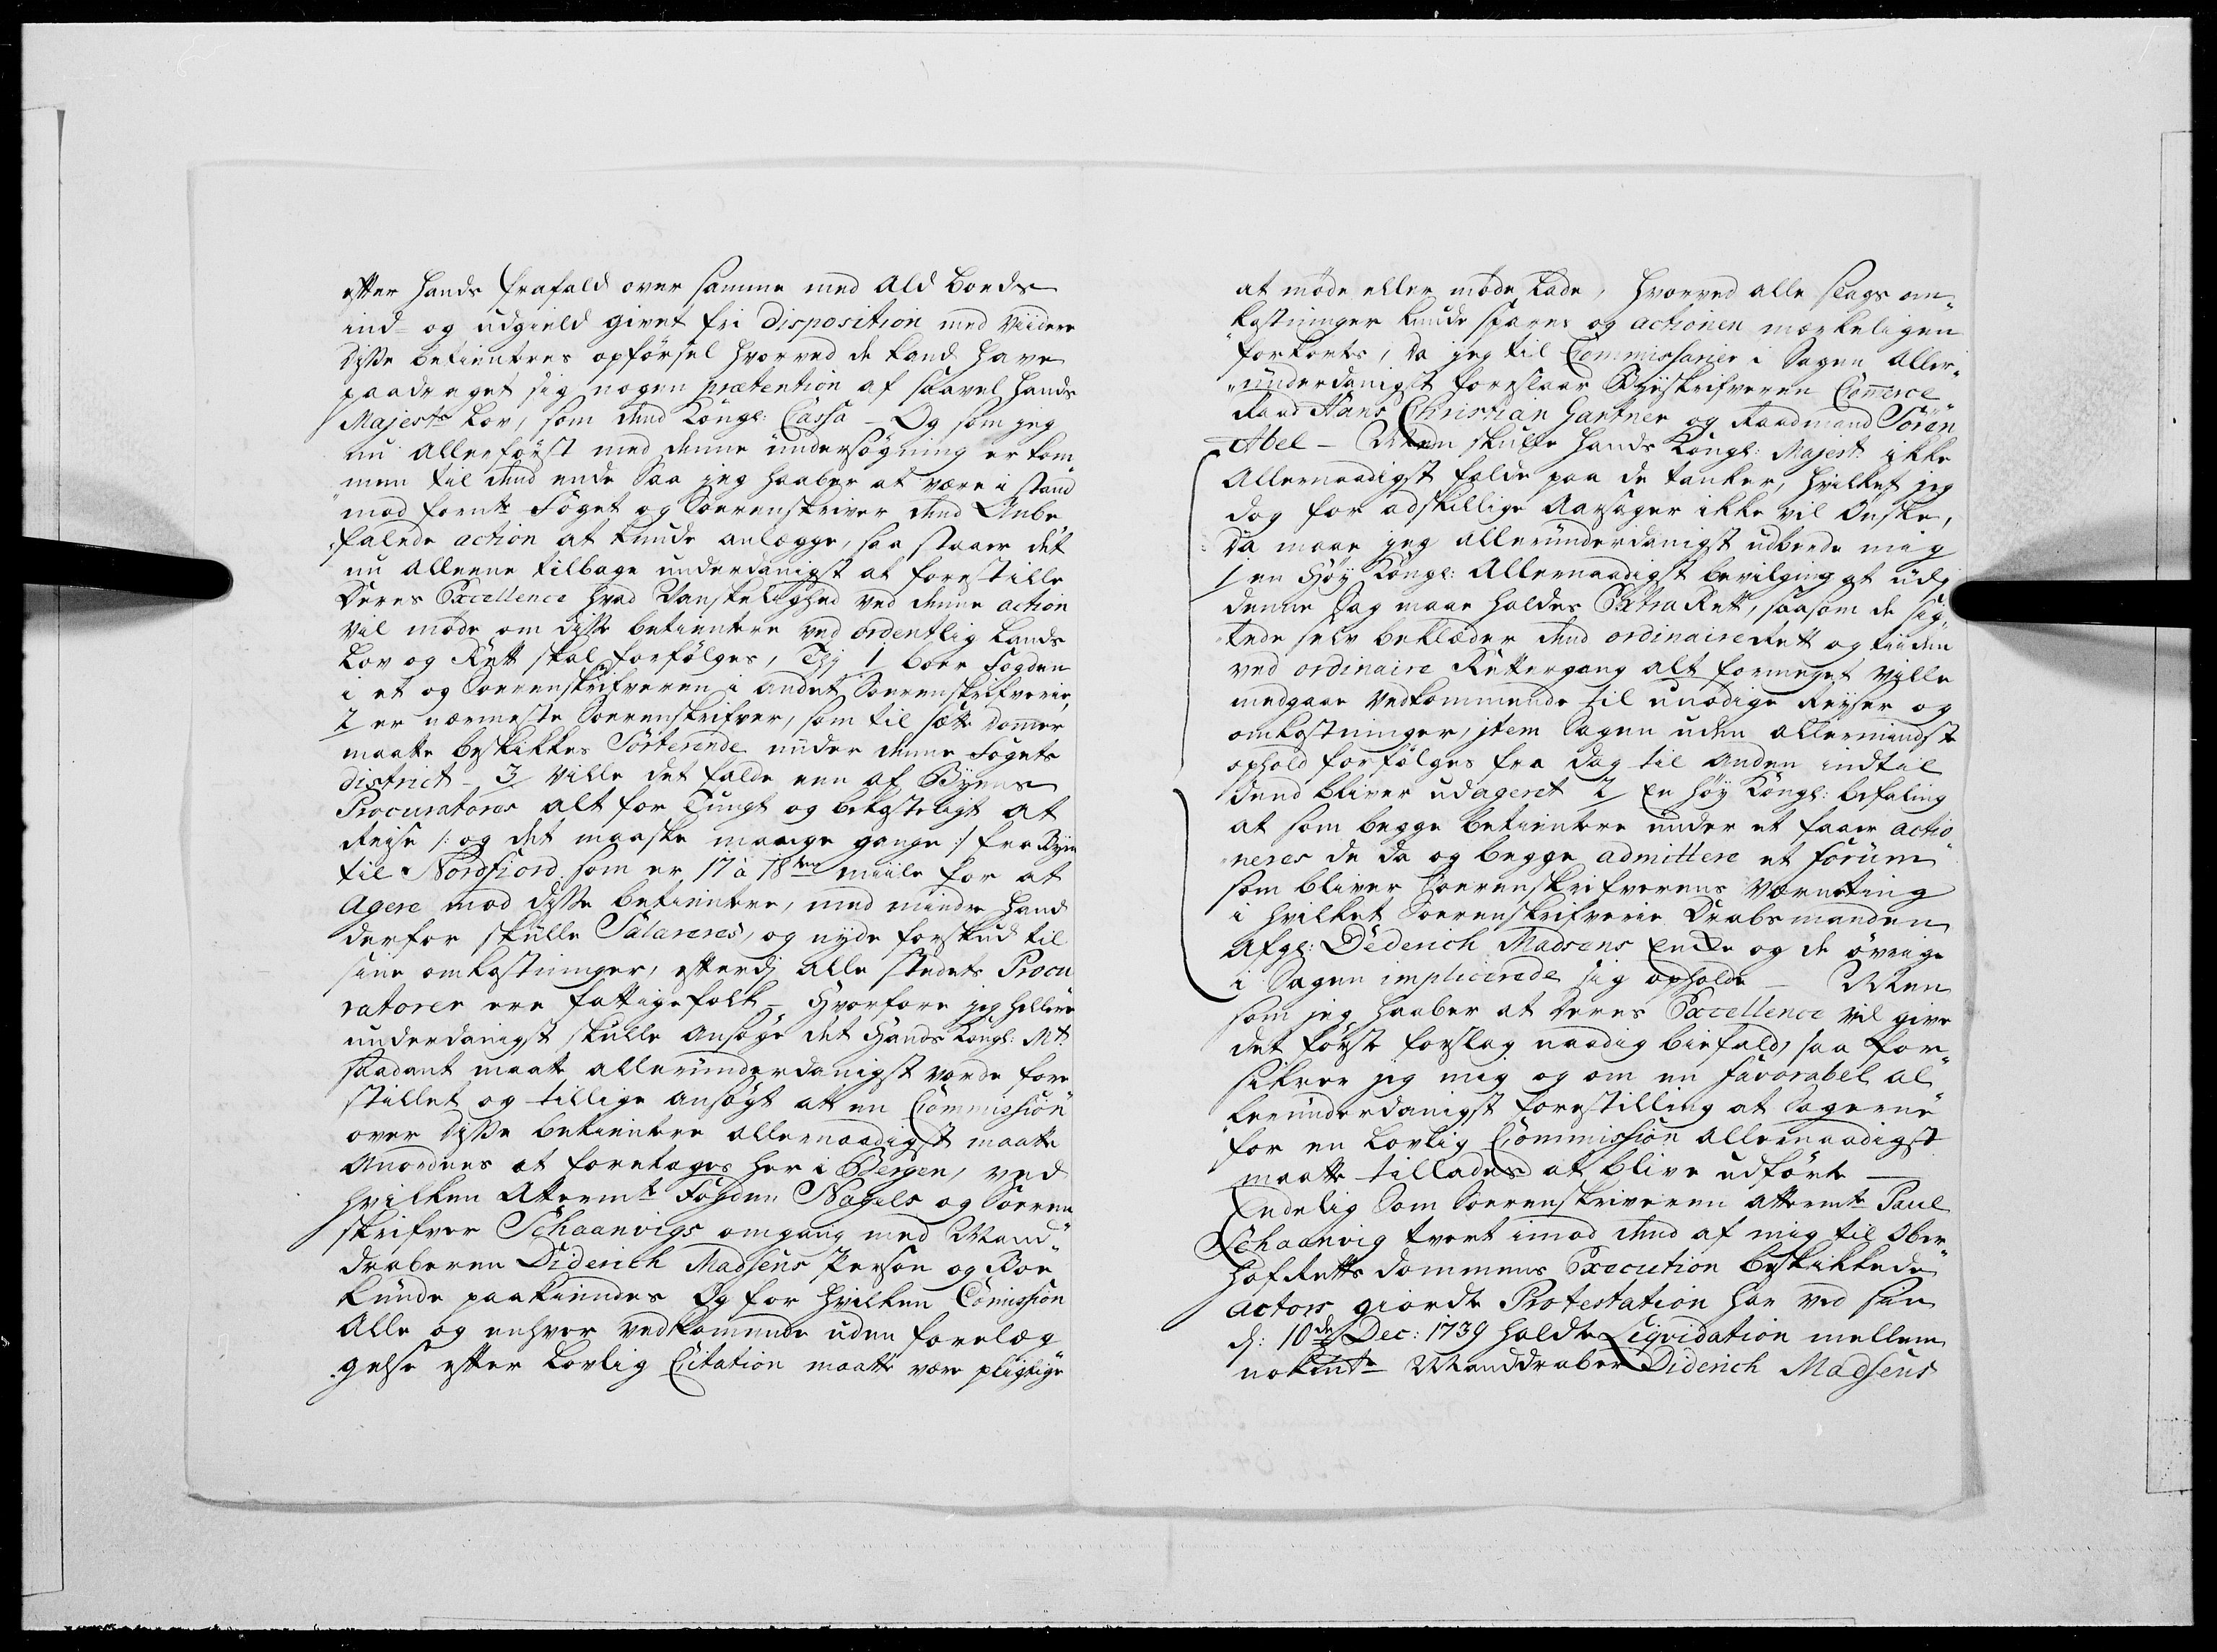 efter hands frafald over samme med ald boeds
ind- og udgield givet fri Disposition med Viidere
disse betienteres opførsel hvorved de kand have
paadraget sig nogen prætention af saavel hands
Majestts Lov, som dend Kongl: Cassa – Og som jeg
nu allerførst med denne undersøgning er kom„
„men til dend ende saa jeg haaber at være i stand
mod formte Foget og Sorenskriver dend Anbe„
„falede action at kunde anlægge, saa staaer det
nu alleene tilbage underdanigst at forestille
Deres Excellence hvad Vanskelighed ved denne action
vil møde om disse betientere ved ordentlig Lands
Lov og Rett skal forfølges, Thj 1 boer Fogden
i et og Sorenskrifveren i andet Sorenskrifverie,
2 er nærmeste Sorenskrifver, som til sætte dommer
maatte beskikkes Sorterende under denne Fogets
district – 3 ville det falde enn af Byens
Procuratores alt for Tungt og bekosteligt at
Reise /: og det maaske mange gange :/ fra Byen
til Nordfiord som er 17 à 18ten miile for at
Agere mod disse betientere, med mindre hand
derfor skulle Salareres, og nyde forskud til
sine omkostninger, efterdj alle stedets Procu
ratorer ere fattige folk – Hvorfore jeg hellere
underdanigst skulle ansøge det Hands Kongl: Mt
saadant maatte allerunderdanigst vorde fore
stillet og tillige ansøgt att en Commission
over disse betientere allernaadigst maatte
Anordnes at foretages her i Bergen, ved
hvilken Attermte Fogden Nagels og Soren
skrifver Schaanvigs omgang med Mand„
draberen Diderich Madsens Person og Boe
kunde paakiendes Og for hvilken Comission
Alle og enhver vedkomende uden forelæg
„gelse efter Lovlig Citation maatte være pligtige
at møde eller møde lade, hvorved alle slags om„
„kostninger kunde spares og actionen merkeligen
forkortes, da jeg til Commissarier i Sagen Aller„
„underdanigst foreslaar Byeskrifveren Comerce
Raad Hans Christian Gartner og Raadmand Søren
Abel – Men skulle hands Kongl: Majest: ikke
Allernaadigst falde paa de tanker, hvilket jeg
dog for adskillige Aarsager ikke vil Ønske,
da maae jeg allerunderdanigst udbede mig
1 en Høy Kongl: Allernaadigst bevilging at udj
denne Sag maae holdes Extra Rett, saasom de sig„
„tede selv beklæder dend ordinaire Rett og tiiden
ved ordinaire Rettergang alt formeget ville
medgaae Vedkommende til unødige Reyser og
omkostninger, item Sagen uden allermindste
ophold forfølges fra dag til anden indtil
dend bliver udageret 2 En høy Kongl: befaling
at som begge betientere under et faaer actio
„neres de da og begge admittere et forum
som bliver Sorenskrifverens Værneting
i hvilket Sorenskrifverie Drabsmanden
Afgl: Dederich Madsens Encke og de øvrige
i Sagen implicerede sig opholde – Men
som jeg haaber at Deres Excellence vil give
det første forslag naadig biefald, saa for„
„sikrer jeg mig og om en favorabel al„
„lerunderdanigst forestilling at Sagerne
for en Lovlig Commission allernaadigst
maatte tillades at blive udførte –
Endelig Som Sorenskriveren attermte Paul
Schaanvig tvert imod dend af mig til Ober
Hof Retts dommens Execution beskikkede
actors giordte Protestation har ved sin
d: 10de Dec: 1739 holdte Liqvidation mellem
nokmte Manddraber Diderich Madsens